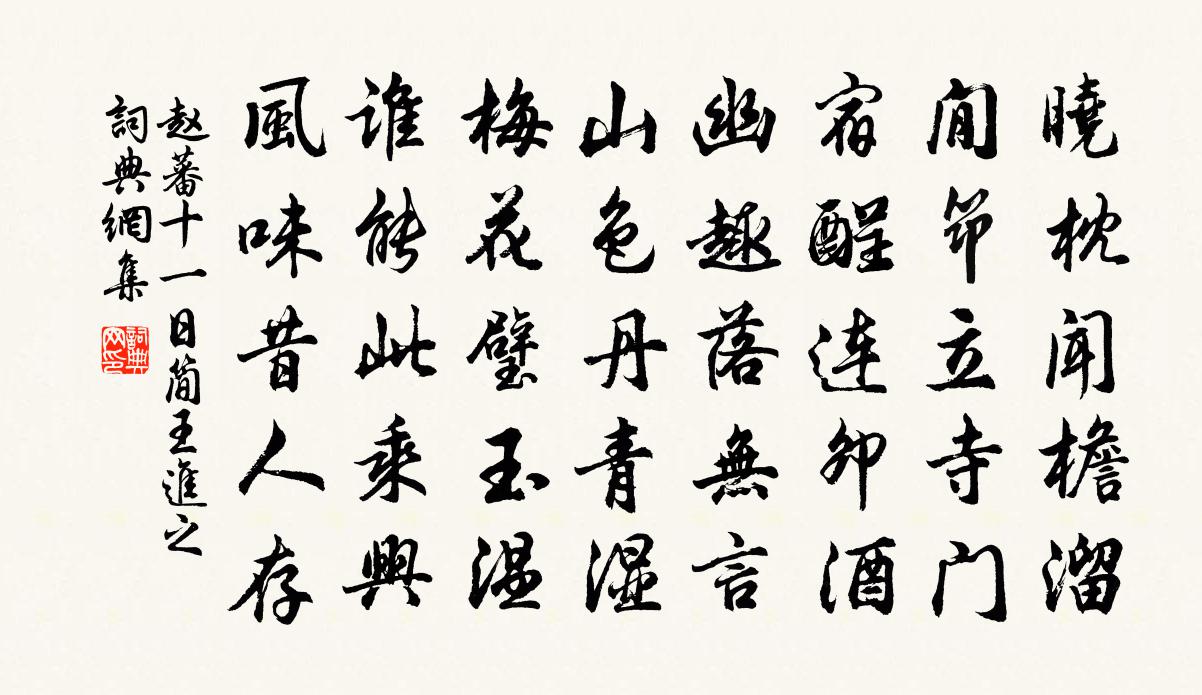 曉枕聞檐溜
閒笻立寺门
宿醒連卯酒
幽趣落無言
山色丹青濕
梅花璧玉温
谁能此乘興
風味昔人存
赵蕃十一日简王進之
詞典網集
詞典網印